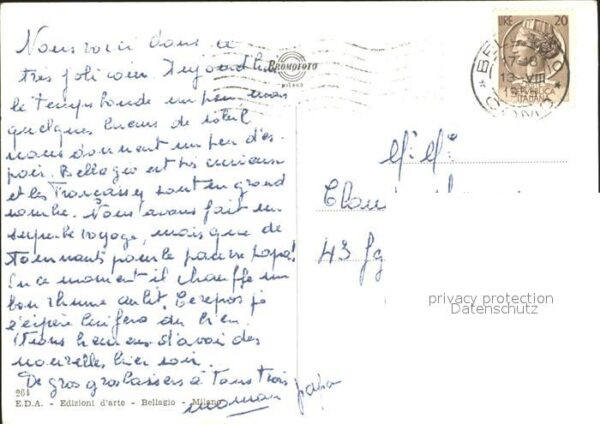 Nous voici dans ce
tres joli coin. Aujourd'hui
le temps boude un peu, mais
quelques lueurs de soleil
nous donnent un peu d'es-
poir. Bellagio est très curieux
et les Français y sont en grand
nombre. Nous avons fait un
superbe voyage, mais que de
tournants pour le pauvre papa!
En ce moment il chauffe un
bon rhume au lit. Ce repos je
l'espère lui fera du bien.
heureux d'avoir des
nouvelles hier soir.
De gros gros baisers à tous trois
maman papa
264
E.D.A. - Edizioni d'arte - Bellagio - Milano
BROMOFOTO
MILANO
LIRE 20
REPUBBLICA
ITALIANA
BELLAGIO
13 VIII
COMO
43 fg
privacy protection
Datenschutz